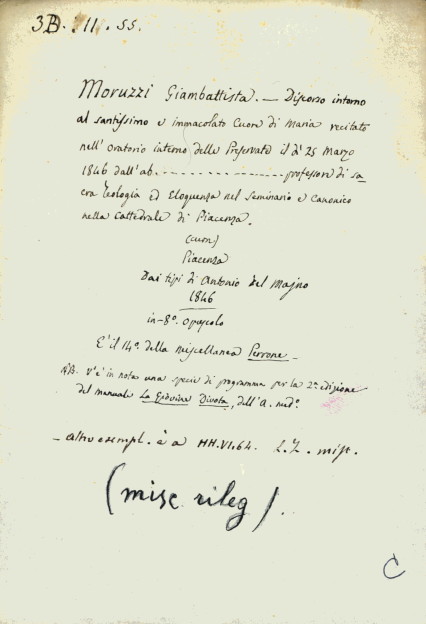 3B. II. 55.
Moruzzi Giambattista. — Discorso intorno
al santissimo e immacolato Cuore di Maria recitato
nell' oratorio interno delle Preservate il dì 25 Marzo
1846 dall' ab. - - - - - - - - - - - - - - professore di sa-
cra teologia ed Eloquenza nel Seminario e canonico
nella Cattedrale di Piacenza.
Piacenza
Dai tipi di Antonio Del Majno
1846
in-8º. opuscolo
E' il 14º. della Miscellanea Perrone —
NB. V'è in nota una specie di programma per la 2ª edizione
del manuale La Giovine Divota, dell' A. medº.
— altro esempl. è a HH. VI. 64. L. Z. misc.
(misc rileg).
C